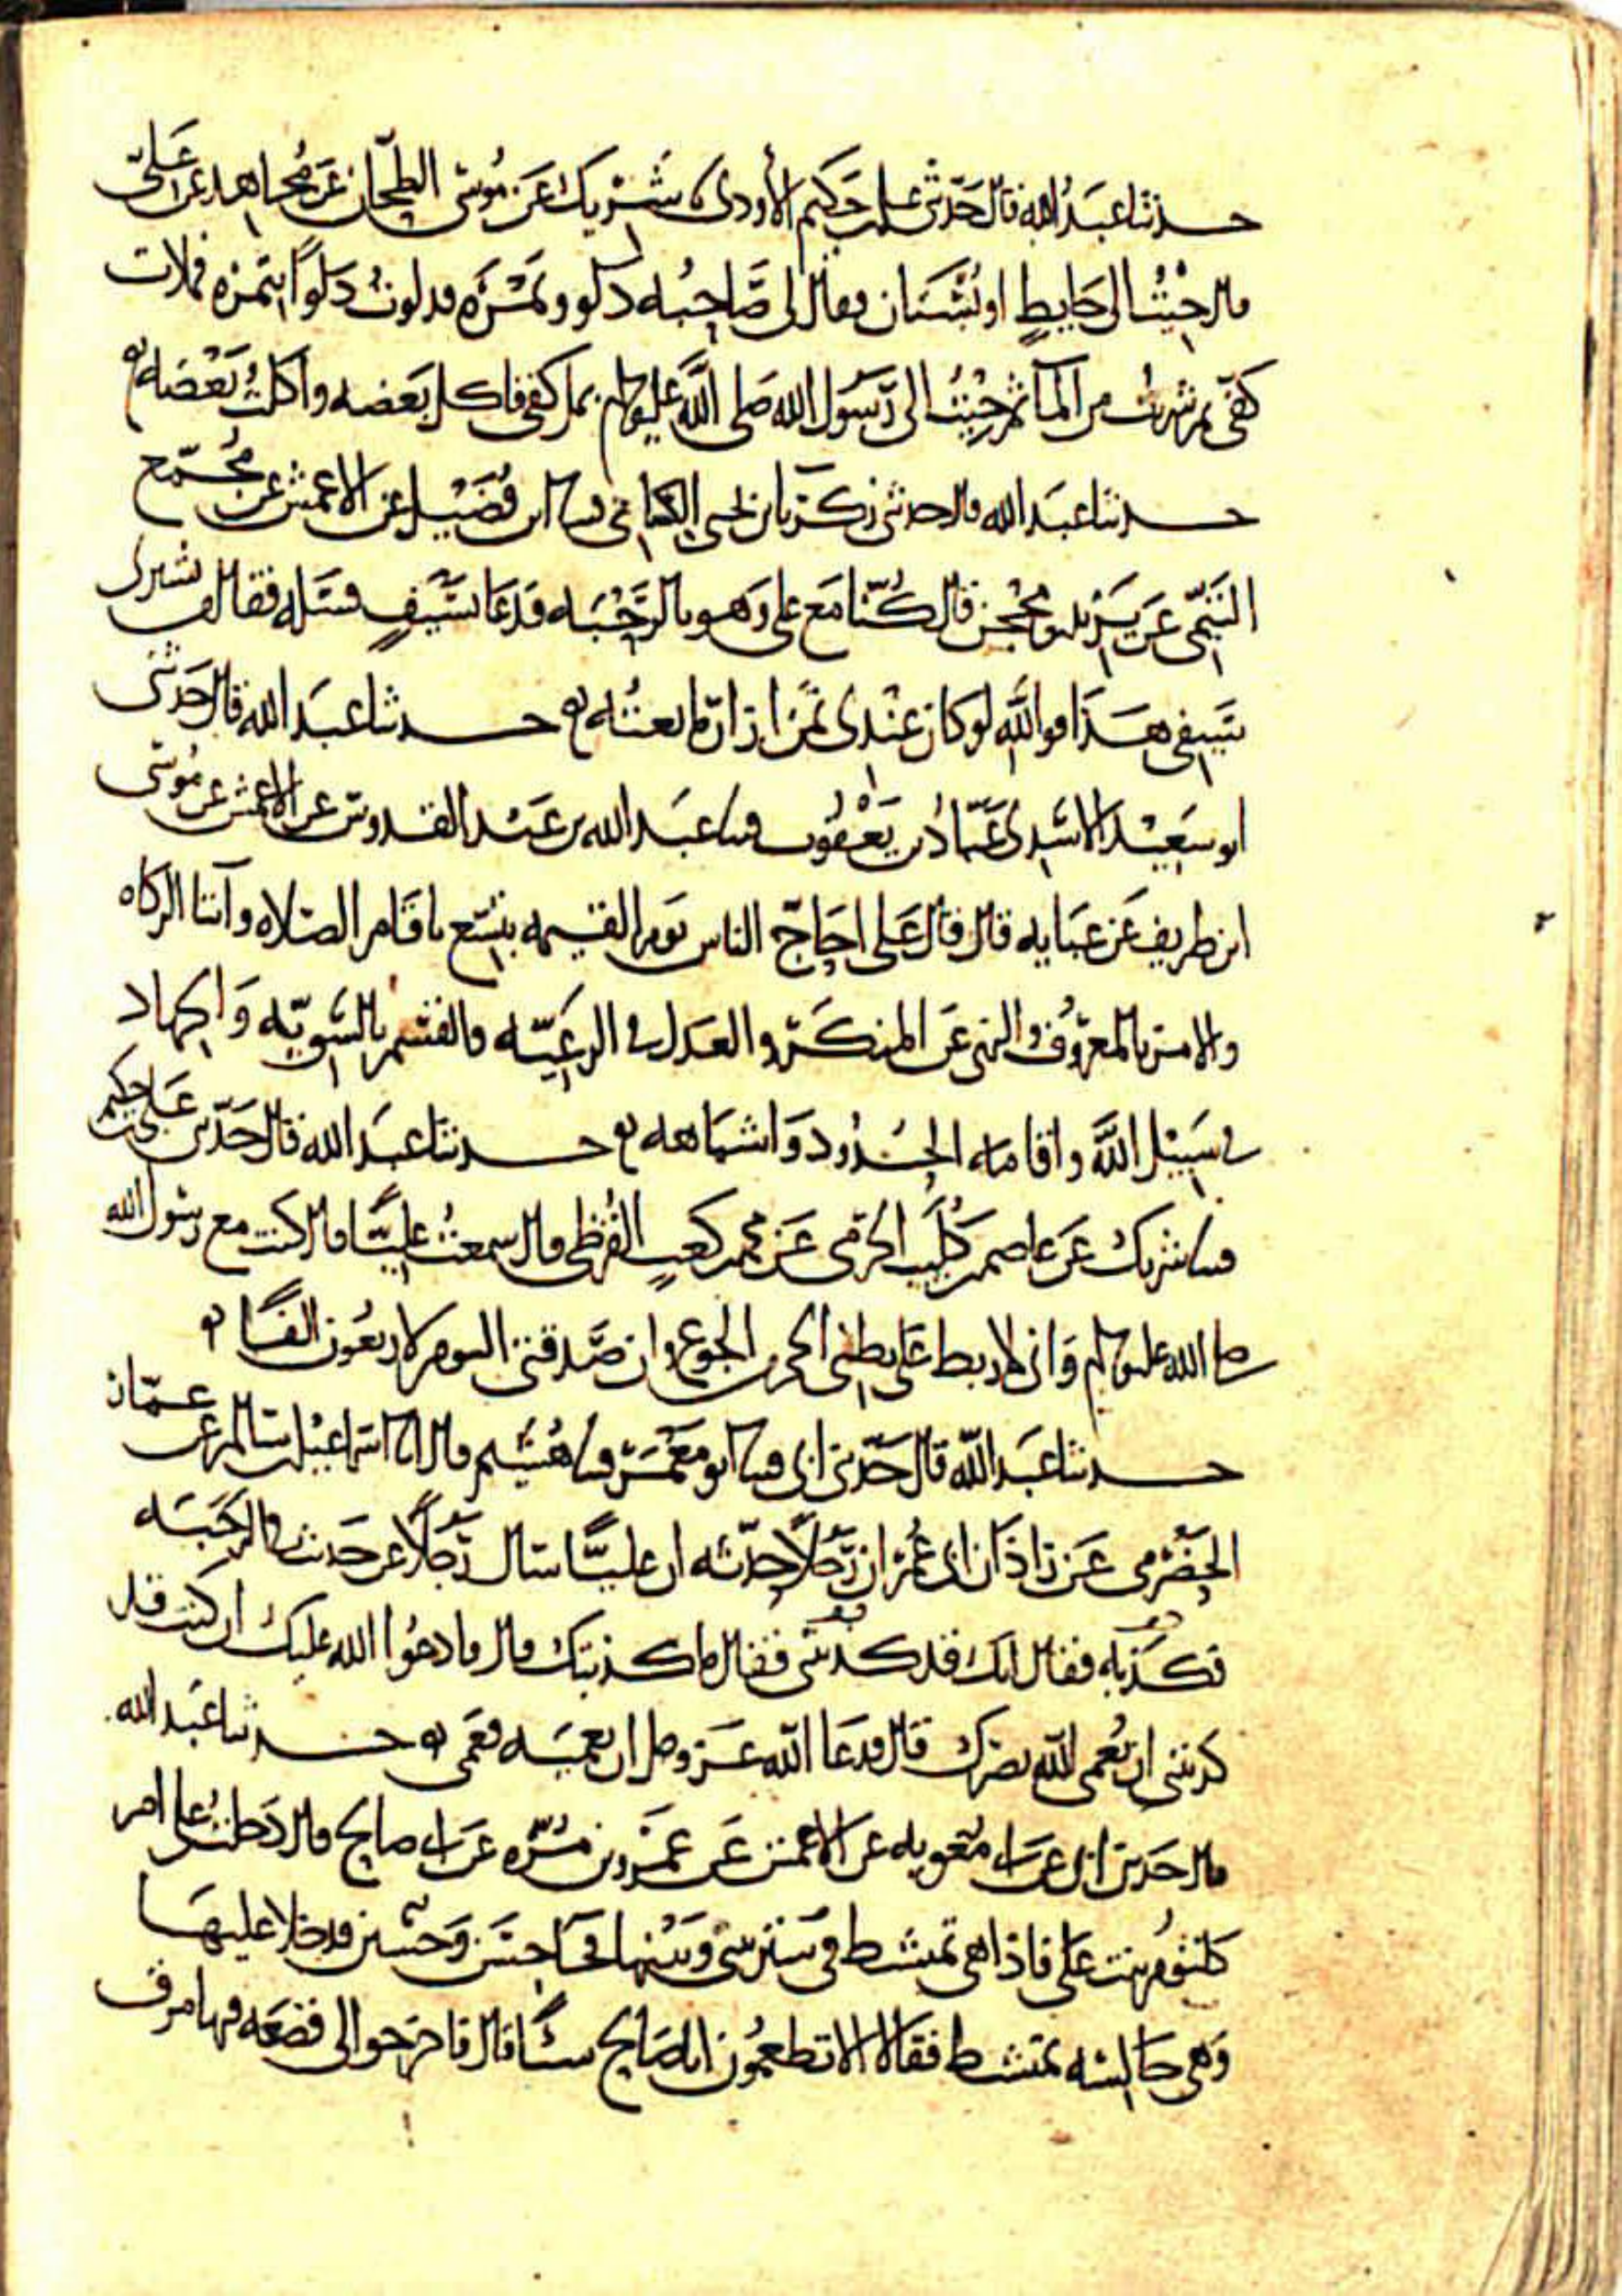 حدثنا عبد الله قال حدثني علي بن حكيم الأودي نا شريك عن موسى الطحان عن مجاهد عن علي
قال جئت إلى حايط أو بستان فقال لي صاحبه دلو وتمرة فدلوت دلوا بتمرة فملات
كفي ثم شربت من الماء ثم جئت إلى رسول الله صلى الله عليه وسلم بمل كفي فاكل بعضه واكلت بعضه
حدثنا عبد الله قال حدثني زكريا بن يحيى الكسائي قثنا ابن فضيل عن الاعمش عن مجمع
التيمي عن يزيد بن محجن قال كنا مع علي وهو بالرحبه فدعا بسيف فسله فقال من يشتري
سيفي هذا فوالله لو كان عندي ثمن ازار ما بعته حدثنا عبد الله قال حدثني
ابو سعيد الاشدي عباد بن يعقوب قثنا عبد الله بن عبد القدوس عن الاعمش عن موسى
ابن طريف عن عبايه قال قال علي احاج الناس يوم القيمه بتسع باقام الصلاه وايتا الزكاه
والامر بالمعروف والنهي عن المنكر والعدل في الرعيه والقسم بالسويه والجهاد
في سبيل الله واقامه الحدود واشباهه حدثنا عبد الله قال حدثني علي بن حكيم
قثنا شريك عن عاصم بن كليب الجرمي عن محمد بن كعب القرظي قال سمعت عليا قال كنت مع رسول الله
صلى الله عليه وسلم واني لاربط على بطني الحجر من الجوع وان صدقتي اليوم لاربعون الفا
حدثنا عبد الله قال حدثني ابي قثنا ابو معمر قثنا هشيم قال انا اسماعيل بن سالم عن عمار
الحضرمي عن زاذان ابي عمر ان رجلا حدثه ان عليا سال رجلا عن حديث في الرحبه
فكذبه فقال انك قد كذبتني فقال ما كذبتك قال فادعوا الله عليك ان كنت قد
كذبتني ان يعمي الله بصرك قال فدعا الله عز وجل ان يعميه فعمي حدثنا عبد الله
قال حدثني ابي عن ابي معويه عن الاعمش عن عمرو بن مره عن ابي صالح قال دخلت على ام
كلثوم بنت علي فاذا هي تمتشط في ستر بيني وبينها فجا حسن وحسين فدخلا عليها
وهي جالسه تمتشط فقالا الا تطعمون ابا صالح شيا قال فاخرجوا الي قصعه فيها مرق